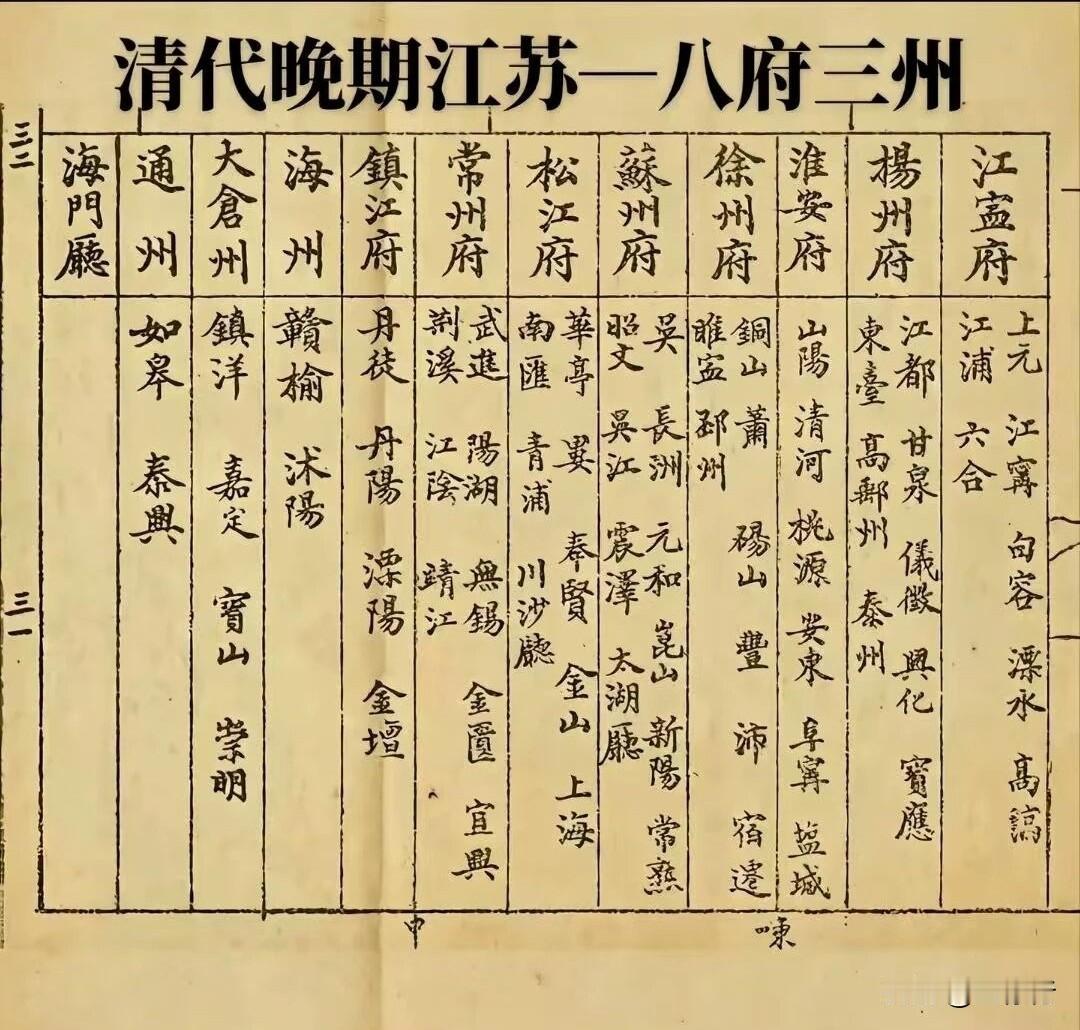 清代晚期江苏—八府三州
江寍府
上元 江寗 句容 溧水 高淳
江浦 六合
揚州府
江都 甘泉 儀徵 興化 寶應
東臺 高郵州 泰州
淮安府
山陽 清河 桃源 安東 阜寗 塩城
徐州府
銅山 蕭 碭山 豐 沛 宿遷
睢寍 邳州
蘇州府
吳 長洲 元和 崑山 新陽 常熟
昭文 吳江 震澤 太湖廳
松江府
華亭 婁 奉賢 金山 上海
南匯 青浦 川沙廳
常州府
武進 陽湖 無錫 金匱 宜興
荆溪 江陰 靖江
鎮江府
丹徒 丹陽 溧陽 金壇
海州
贛榆 沭陽
大倉州
鎮洋 嘉定 寶山 崇明
通州
如皋 泰興
海門廳
三二
三一
中